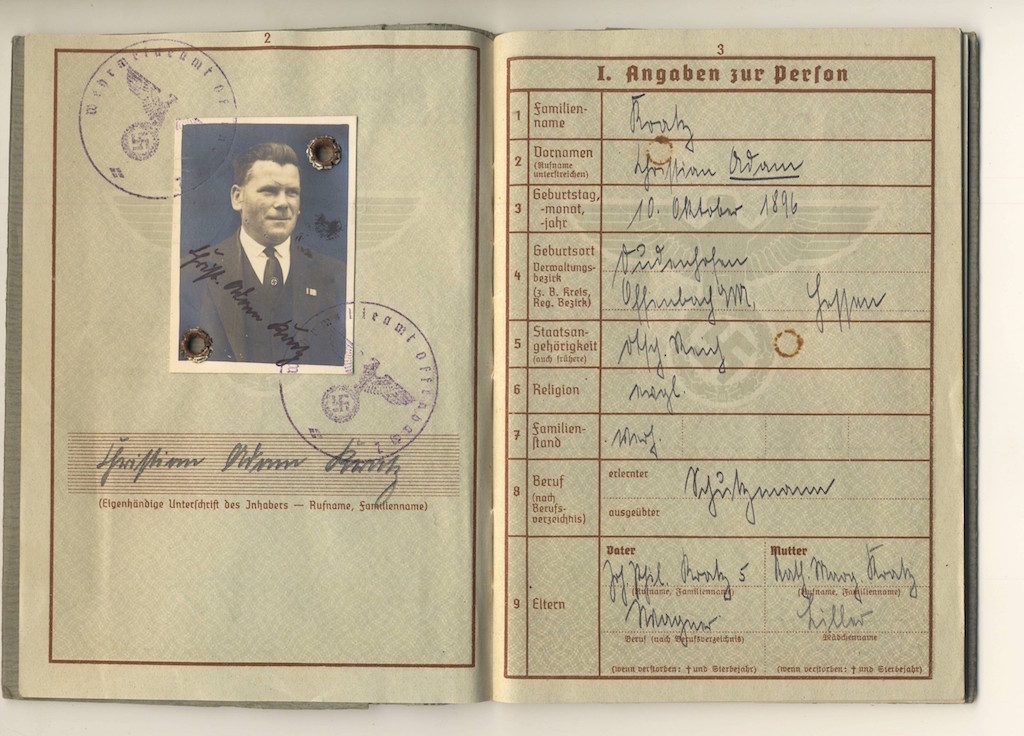 2
Wehrmeldeamt Of
Christ. Adam Kratz
meldeamt Offenbach
Christian Adam Kratz
(Eigenhändige Unterschrift des Inhabers — Rufname, Familienname)
3
I. Angaben zur Person
1 Familien-
name
Kratz
2 Vornamen
(Rufname
unterstreichen)
Christian Adam
3 Geburtstag,
-monat,
-jahr
10. Oktober 1896
4 Geburtsort
Verwaltungs-
bezirk
(z. B. Kreis,
Reg. Bezirk)
Dudenhofen
Offenbach/M. Hessen
5 Staatsan-
gehörigkeit
(auch frühere)
Dtsch. Reich
6 Religion
evgl.
7 Familien-
stand
verh.
8 Beruf
(nach
Berufs-
verzeichnis)
erlernter
Schutzmann
ausgeübter
9 Eltern
Vater
Joh. Phil. Kratz 5
(Rufname, Familienname)
Wagner
Beruf (nach Berufsverzeichnis)
(wenn verstorben: † und Sterbejahr)
Mutter
Kath. Marg. Kratz
(Rufname, Familienname)
Mädchenname
(wenn verstorben: † und Sterbejahr)